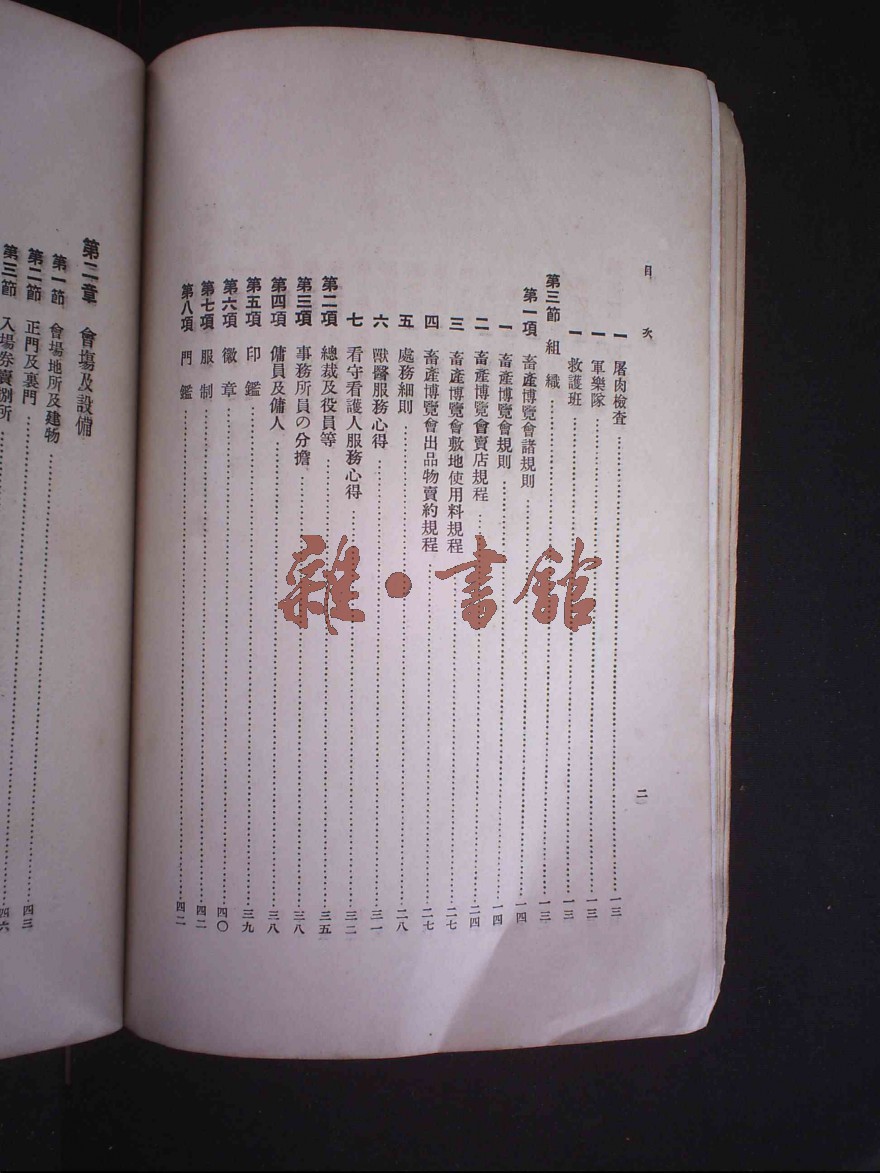 目次
一 屠肉檢査……一三
一 軍樂隊……一三
一 救護班……一三
第三節 組織……一三
第一項 畜產博覽會諸規則……一四
一 畜產博覽會規則……一四
二 畜產博覽會賣店規程……二四
三 畜產博覽會敷地使用料規程……二七
四 畜產博覽會出品物賣約規程……二七
五 處務細則……二八
六 獸醫服務心得……三一
七 看守看護人服務心得……三二
第二項 總裁及役員等……三五
第三項 事務所員の分擔……三八
第四項 傭員及傭人……三八
第五項 印鑑……三九
第六項 徽章……四〇
第七項 服制……四二
第八項 門鑑……四二
二
第二章 會場及設備
第一節 會場地所及建物……
第二節 正門及裏門……四三
第三節 入場券賣捌所……四六
雜·書館